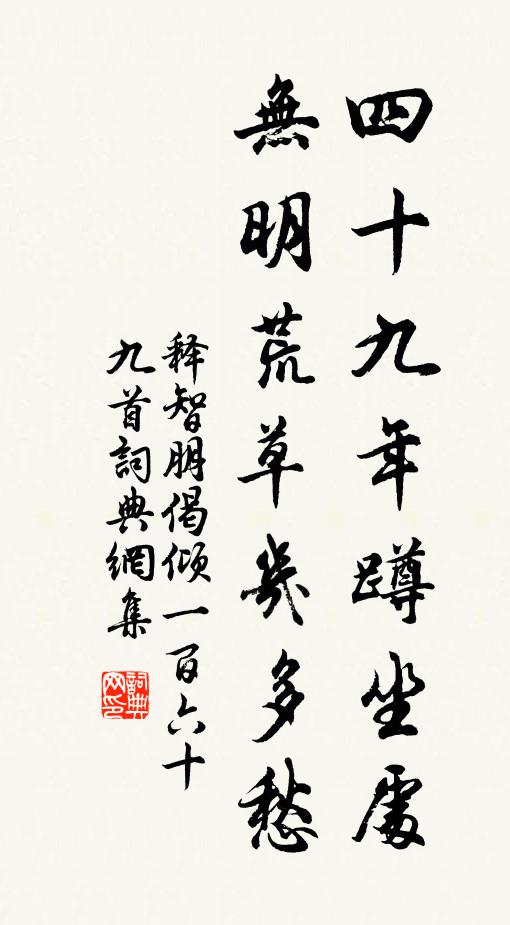 四十九年蹲坐處
無明荒草幾多愁
释智朋偈倾一百六十
九首詞典網集
詞典网印